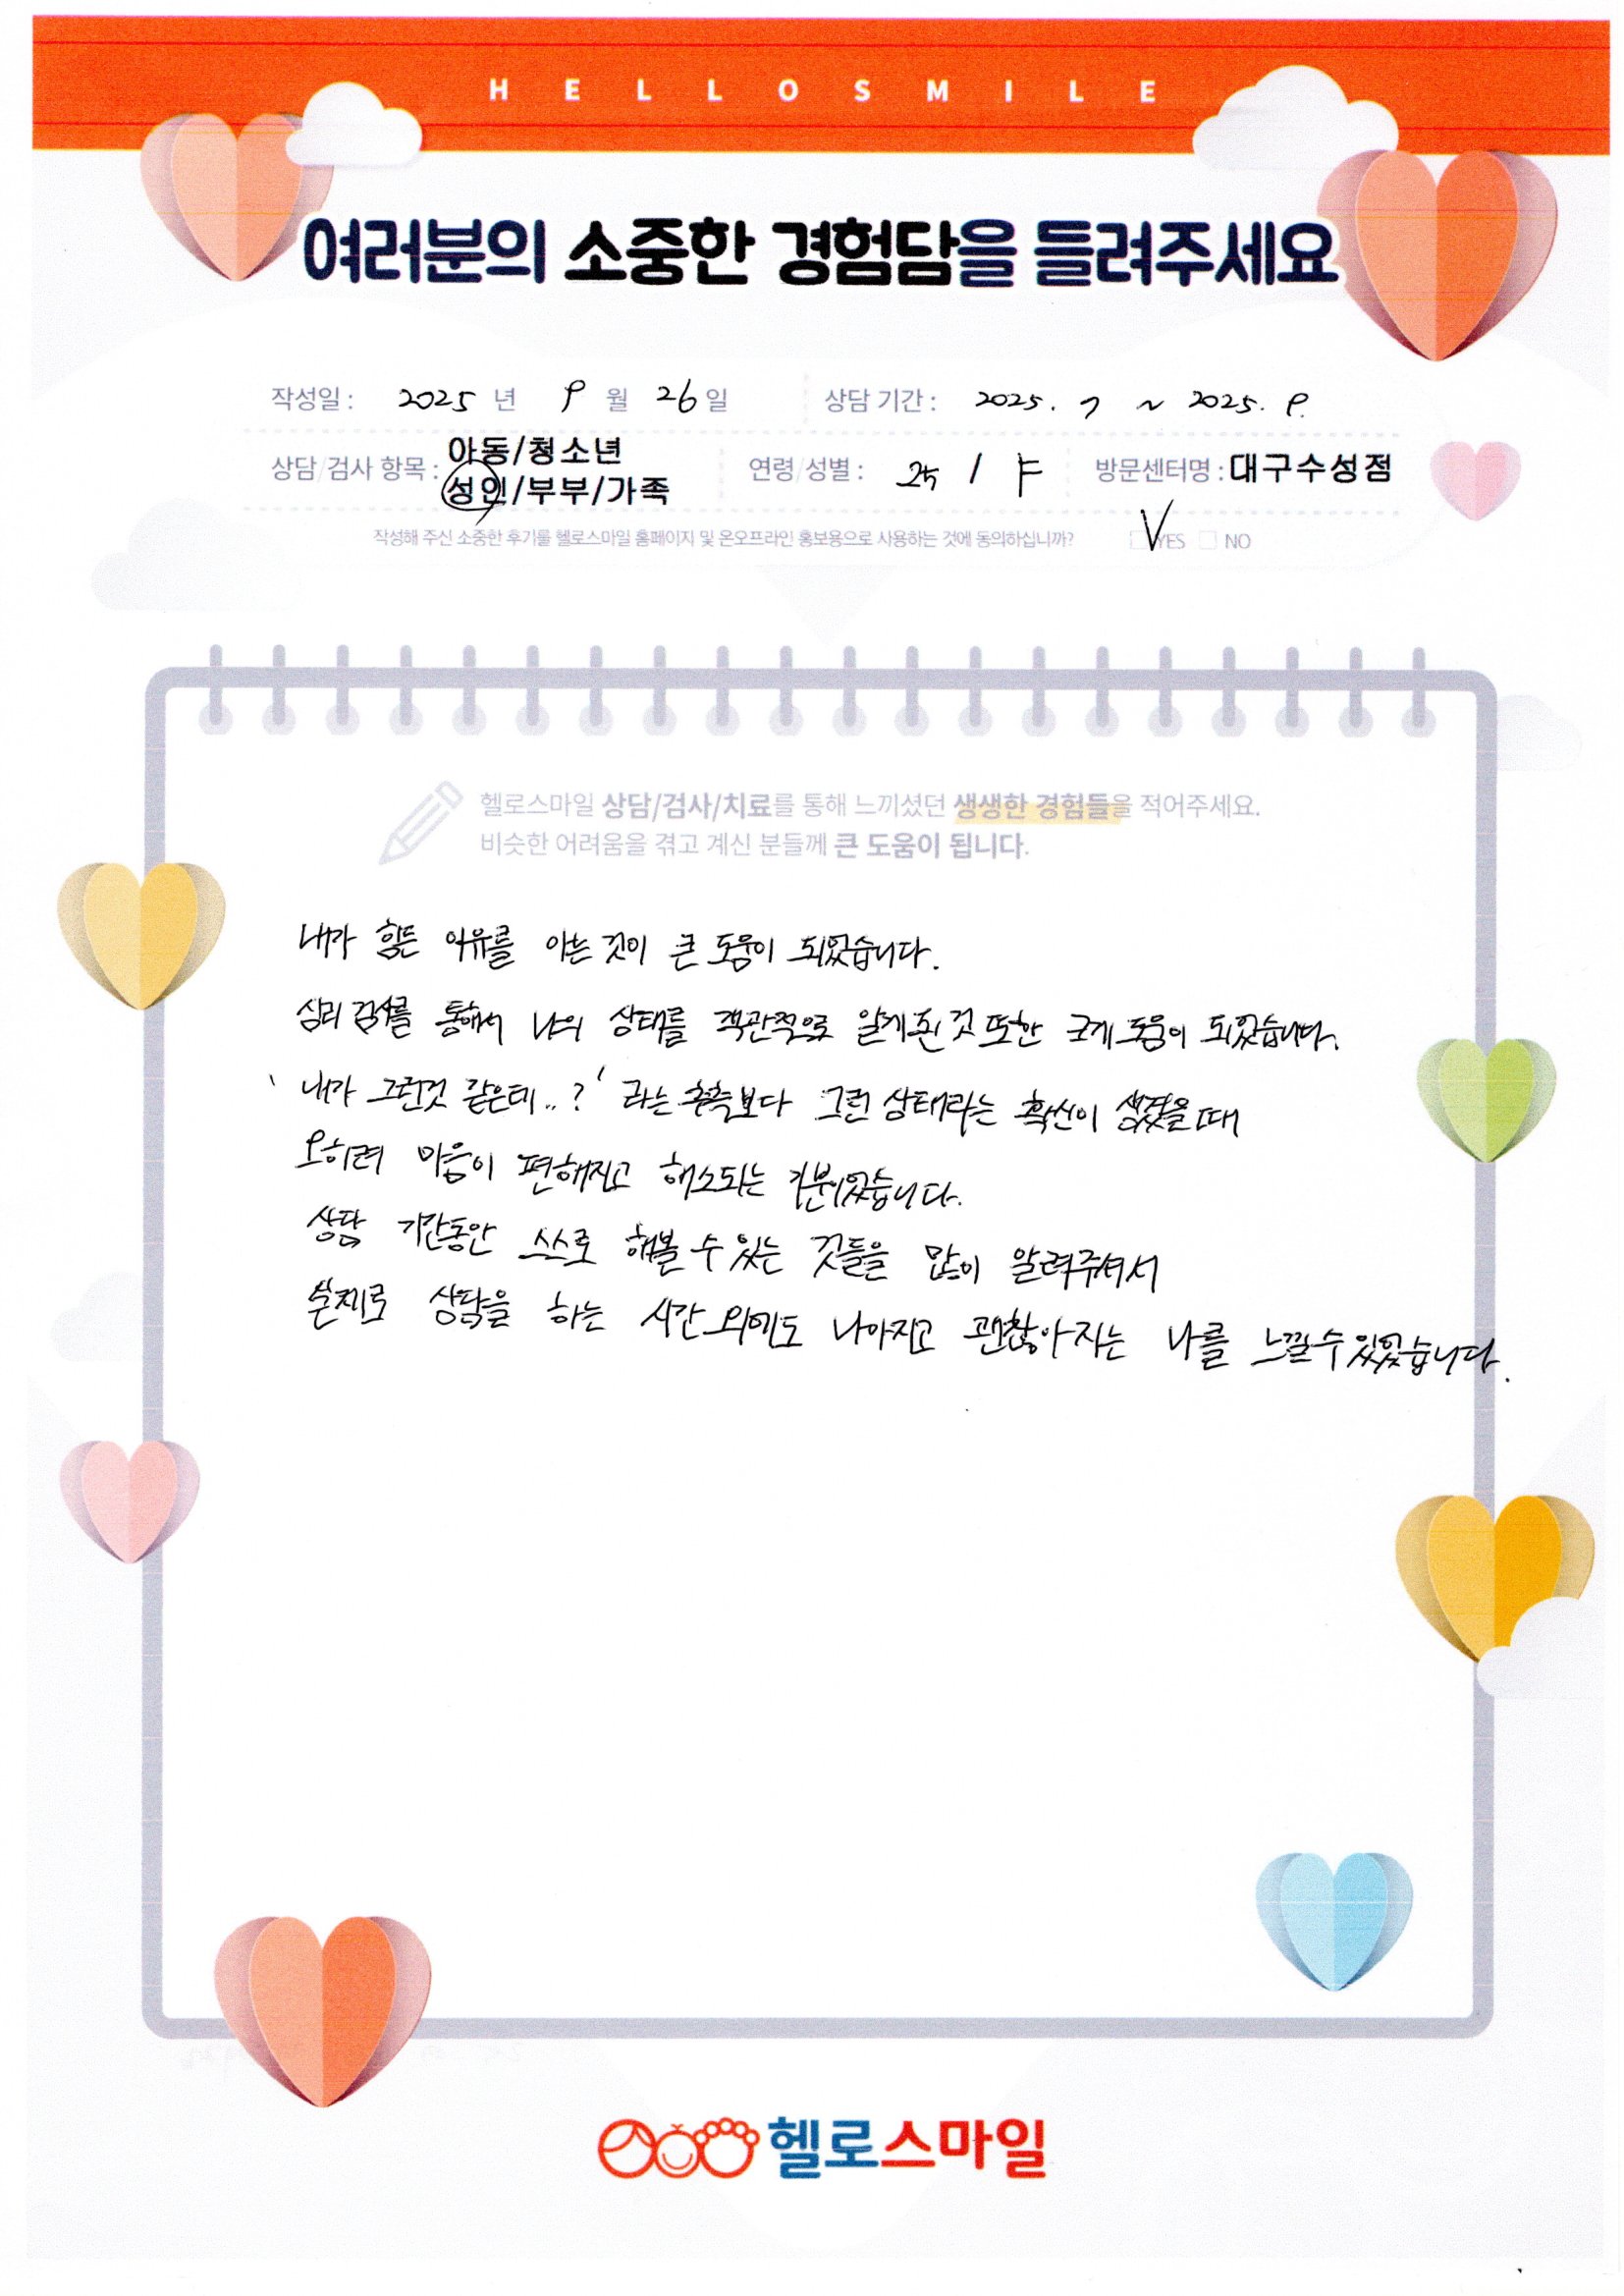 HELLOSMILE
여러분의 소중한 경험담을 들려주세요
작성일 : 2025 년 9 월 26 일 상담 기간 : 2025. 7 ~ 2025. 9.
상담/검사 항목 : 아동/청소년 성인/부부/가족 연령/성별 : 25 / F 방문센터명 : 대구수성점
작성해 주신 소중한 후기를 헬로스마일 홈페이지 및 온오프라인 홍보용으로 사용하는 것에 동의하십니까? YES NO
헬로스마일 상담/검사/치료를 통해 느끼셨던 생생한 경험들을 적어주세요.
비슷한 어려움을 겪고 계신 분들께 큰 도움이 됩니다.
내가 힘든 이유를 아는 것이 큰 도움이 되었습니다.
심리 검사를 통해서 나의 상태를 객관적으로 알게 된 것 또한 크게 도움이 되었습니다.
'내가 그런것 같은데..?' 라는 추측보다 그런 상태라는 확신이 생겼을 때
오히려 마음이 편해지고 해소되는 기분이었습니다.
상담 기간동안 스스로 해볼 수 있는 것들을 많이 알려주셔서
실제로 상담을 하는 시간 외에도 나아지고 괜찮아지는 나를 느낄 수 있었습니다.
헬로스마일